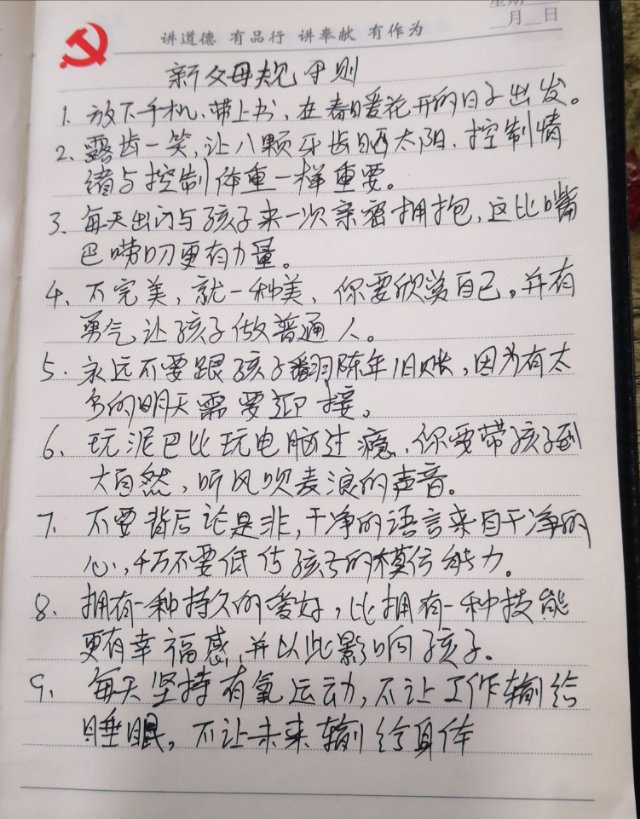 星期
月 日
讲道德 有品行 讲奉献 有作为
新父母规守则
1. 放下手机、带上书,在春日暖花开的日子出发。
2. 露齿一笑,让八颗牙齿晒太阳,控制情
绪与控制体重一样重要。
3. 每天出门与孩子来一次亲密拥抱,这比嘴
巴唠叨更有力量。
4. 不完美,就一种美,你要欣赏自己,并有
勇气让孩子做普通人。
5. 永远不要跟孩子翻陈年旧账,因为有太
多的明天需要迎接。
6. 玩泥巴比玩电脑过瘾,你要带孩子到
大自然,听风吹麦浪的声音。
7. 不要背后论是非,干净的语言来自干净的
心,千万不要低估孩子的模仿能力。
8. 拥有一种持久的爱好,比拥有一种技能
更有幸福感,并以此影响孩子。
9. 每天坚持有氧运动,不让工作输给
睡眠,不让未来输给身体